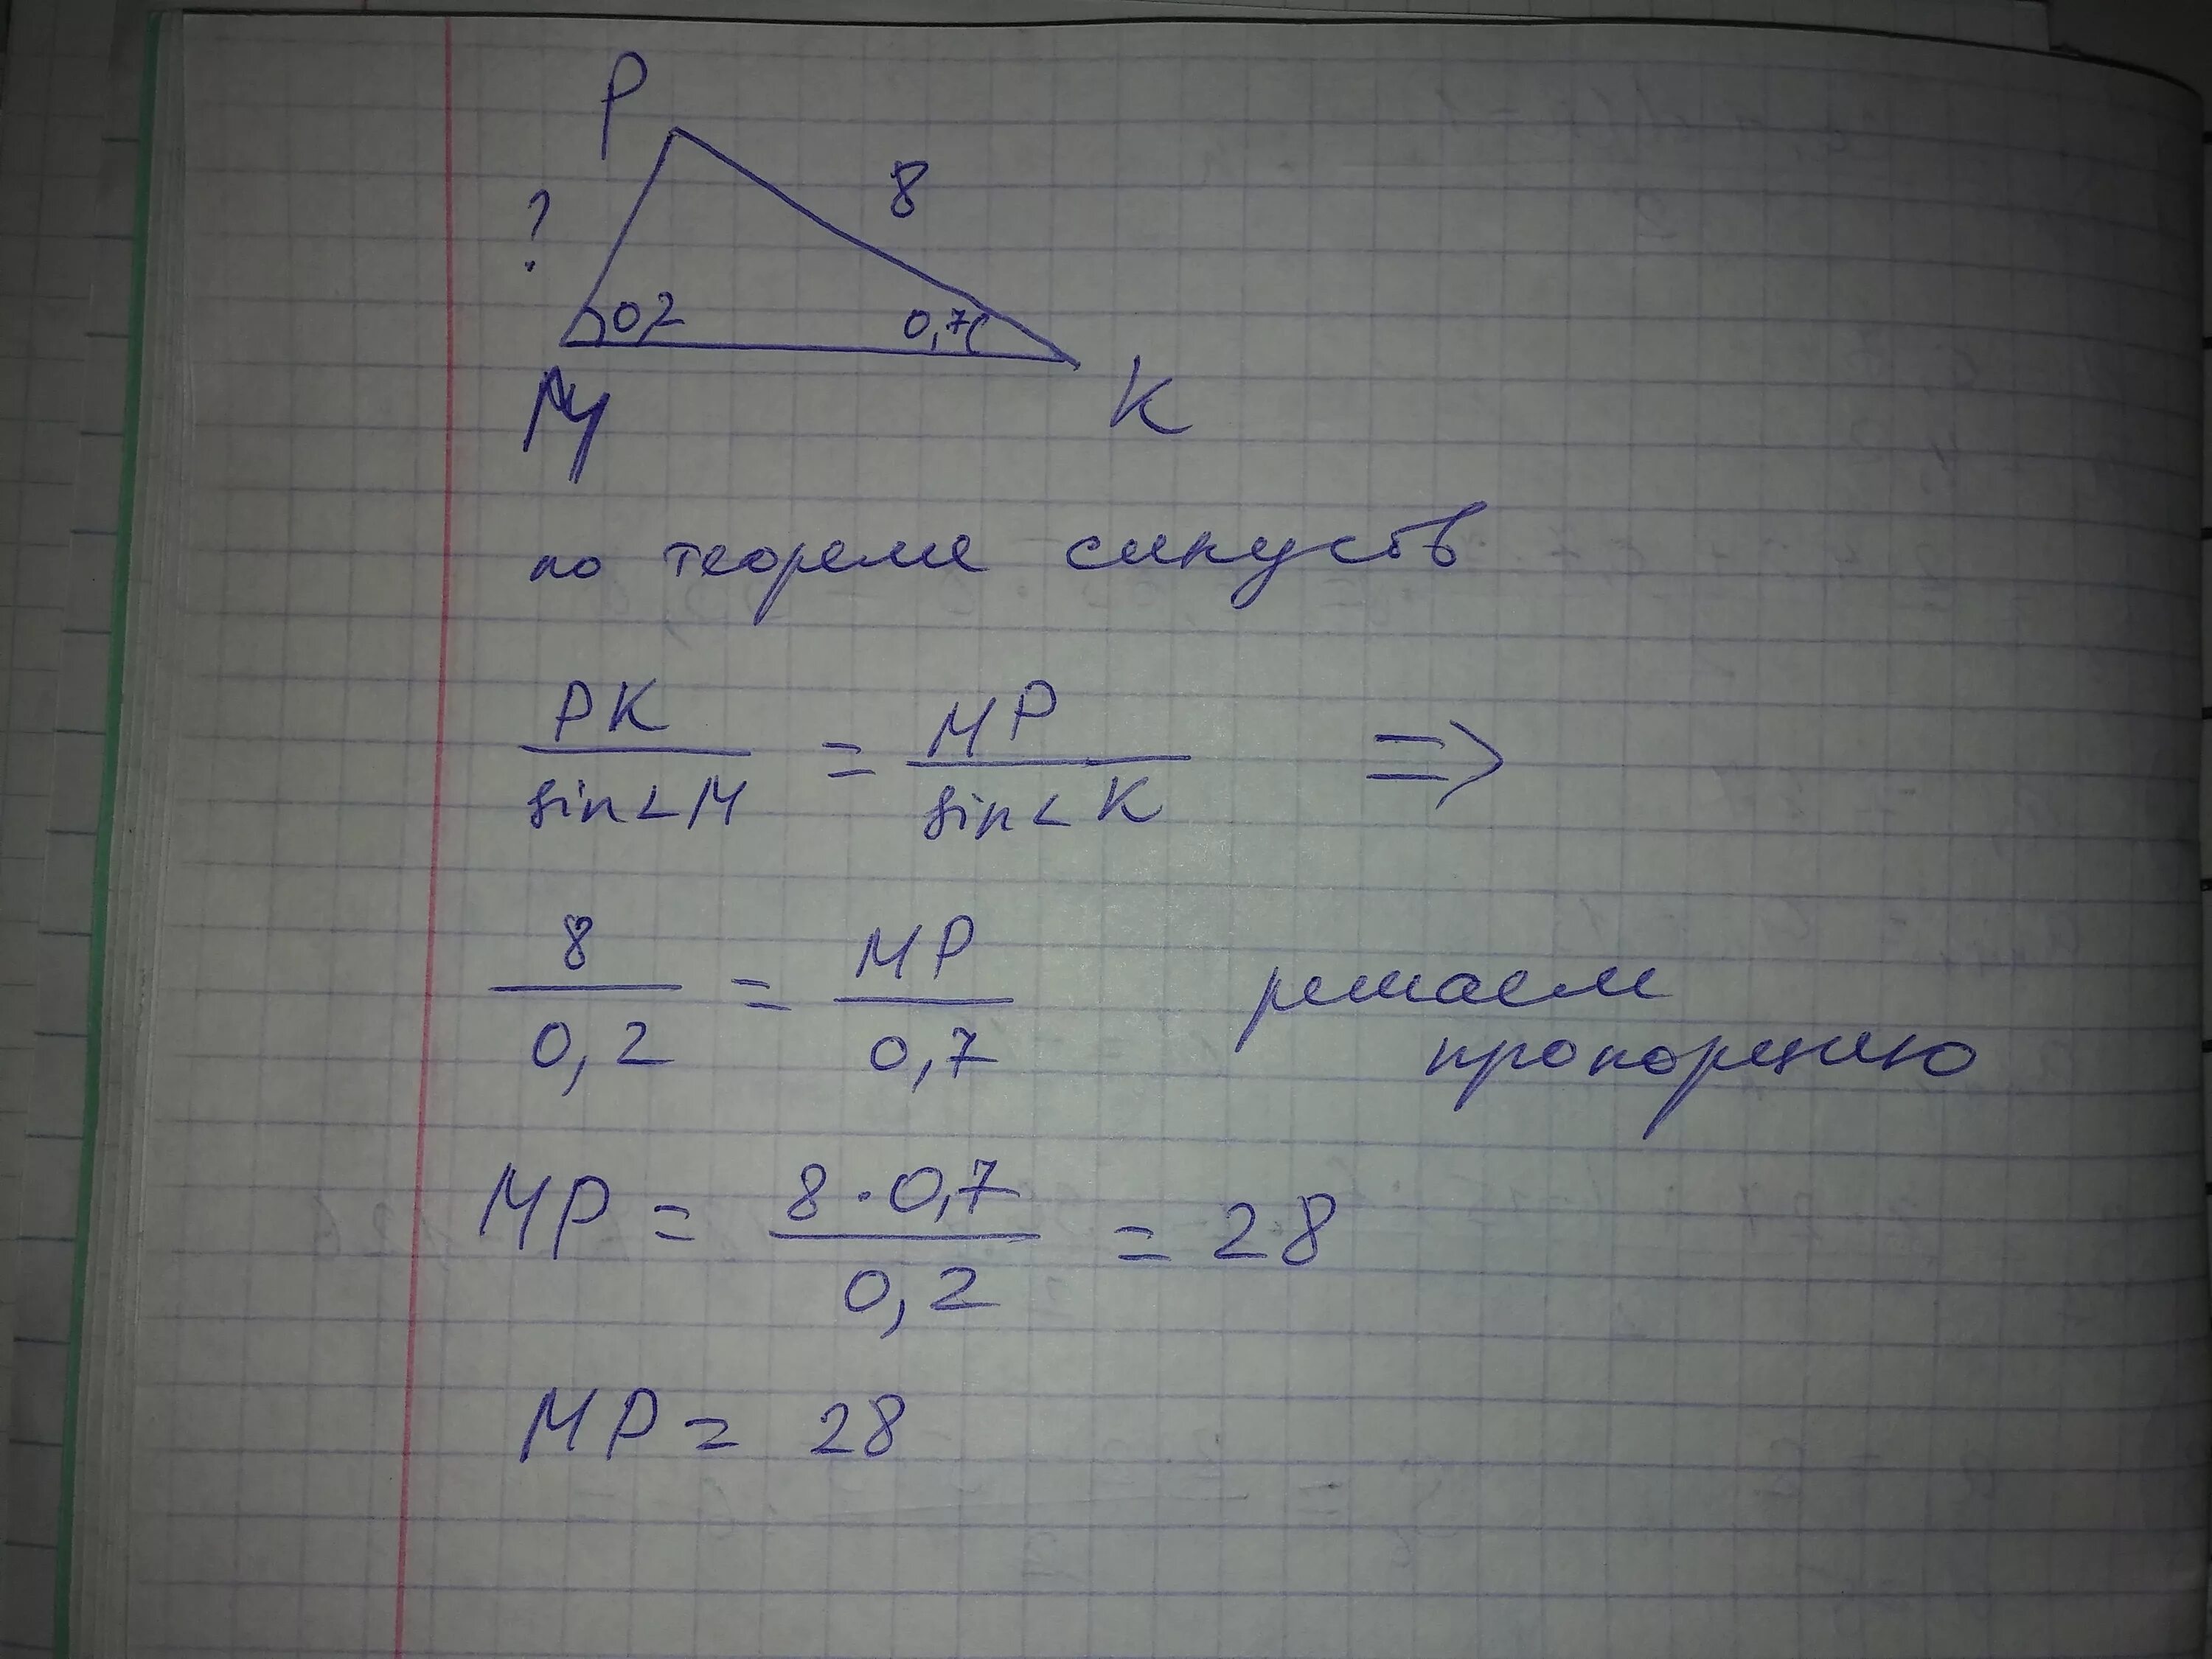 P
8
?
0,2
0,7
M
K
по теореме синусов
PK/sin∠M = MP/sin∠K ⇒
8/0,2 = MP/0,7 решаем
пропорцию
MP = 8·0,7/0,2 = 28
MP = 28